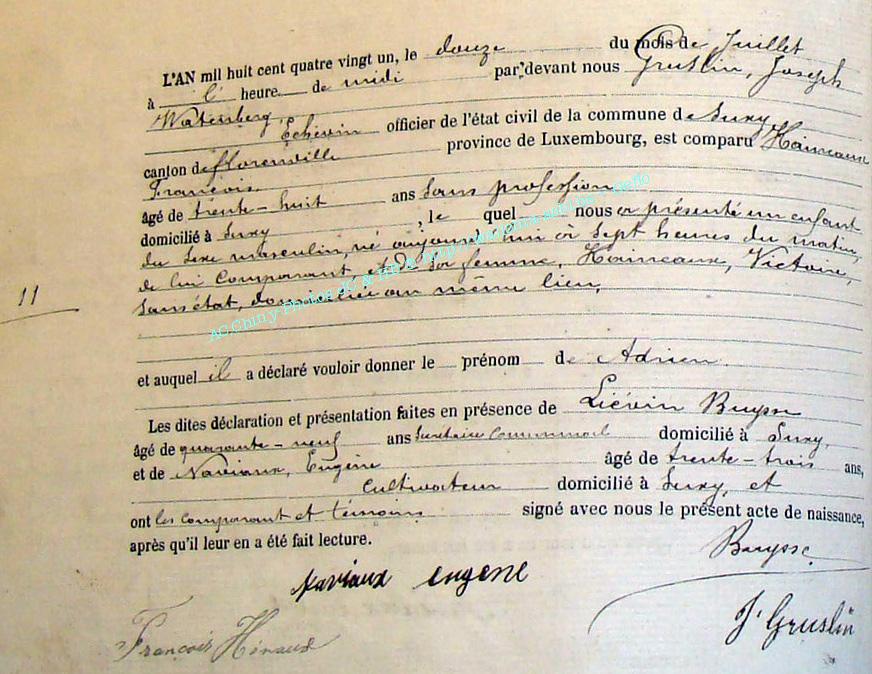 L'AN mil huit cent quatre vingt un, le douze du mois de Juillet
à l' heure de midi par devant nous Gruslin, Joseph
Échevin officier de l'état civil de la commune de Suxy,
canton de Florenville province de Luxembourg, est comparu Haineaux
François
âgé de trente-huit ans sans profession
domicilié à Suxy, le quel nous a présenté un enfant
du sexe masculin, né aujourd'hui à sept heures du matin,
11
de lui comparant, et de sa femme, Haineaux, Victoire,
sans état, domiciliée au même lieu,
et auquel il a déclaré vouloir donner le prénom de Adrien.
Les dites déclaration et présentation faites en présence de Liévin Buysse
âgé de quarante-neuf ans Secrétaire communal domicilié à Suxy,
et de Naviaux, Eugène âgé de trente-trois ans,
cultivateur domicilié à Suxy, et
ont les comparant et témoins signé avec nous le présent acte de naissance,
après qu'il leur en a été fait lecture.
Buysse
naviaux eugene
J. Gruslin
François Hénaux